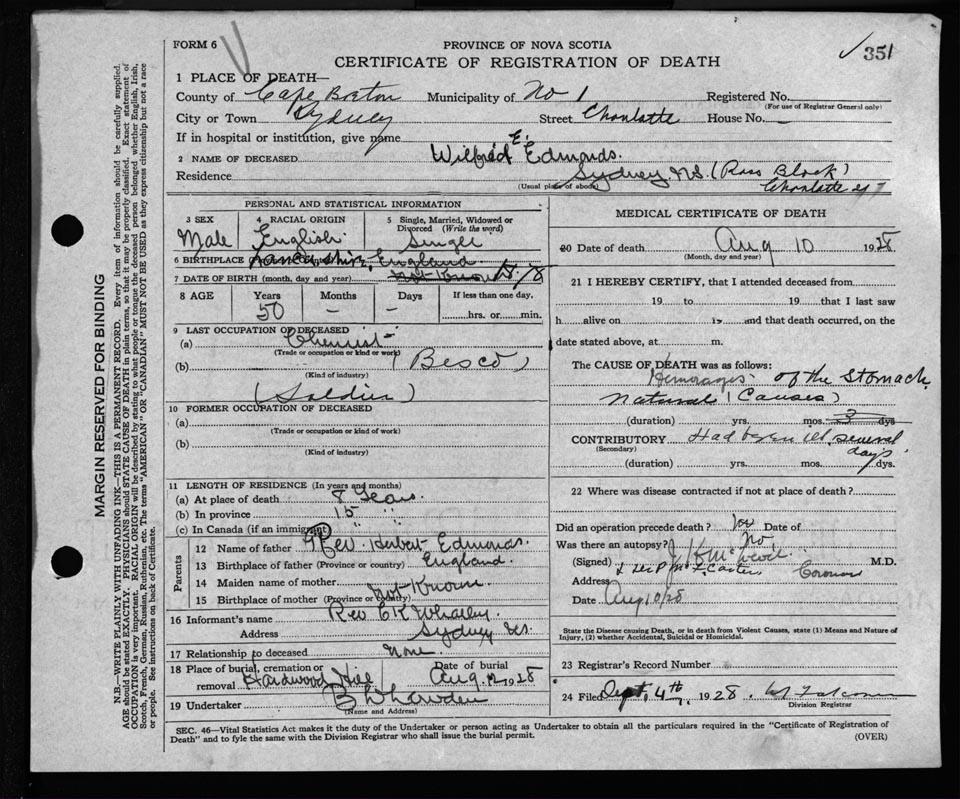 FORM 6
PROVINCE OF NOVA SCOTIA
CERTIFICATE OF REGISTRATION OF DEATH
351
1 PLACE OF DEATH—
County of Cape Breton Municipality of No 1 Registered No.
(For use of Registrar General only)
City or Town Sydney Street Charlotte House No. —
If in hospital or institution, give name
2 NAME OF DECEASED Wilfred E. Edmonds.
Residence Sydney N.S. (Ross Block)
(Usual place of abode) Charlotte St
PERSONAL AND STATISTICAL INFORMATION
3 SEX 4 RACIAL ORIGIN 5 Single, Married, Widowed or Divorced (Write the word)
Male English Single
6 BIRTHPLACE England
7 DATE OF BIRTH (month, day and year) Not Known
8 AGE Years Months Days If less than one day,
50 — — hrs. or min.
9 LAST OCCUPATION OF DECEASED
(a) Chemist
(Trade or occupation or kind or work)
(b) (Besco)
(Kind of industry)
(Soldier)
10 FORMER OCCUPATION OF DECEASED
(a)
(Trade or occupation or kind or work)
(b)
(Kind of industry)
11 LENGTH OF RESIDENCE (In years and months)
(a) At place of death 8 Years.
(b) In province 15 " "
(c) In Canada (if an immigrant) " "
Parents
12 Name of father Rev Herbert Edmonds.
13 Birthplace of father (Province or country) England
14 Maiden name of mother Not Known
15 Birthplace of mother (Province or country)
16 Informant's name Rev C K Whalley
Address Sydney NS.
17 Relationship to deceased None
18 Place of burial, cremation or removal Hardwood Hill Date of burial Aug 12 1928
19 Undertaker
(Name and Address)
MEDICAL CERTIFICATE OF DEATH
20 Date of death Aug 10 1928
(Month, day and year)
21 I HEREBY CERTIFY, that I attended deceased from
19 to 19 that I last saw
h alive on 19 and that death occurred, on the
date stated above, at m.
The CAUSE OF DEATH was as follows:
Hemorages of the Stomach
Natural (Causes)
(duration) yrs. mos. 3 dys
CONTRIBUTORY Had been ill several days
(Secondary)
(duration) yrs. mos. dys.
22 Where was disease contracted if not at place of death?
Did an operation precede death? No Date of
Was there an autopsy? No
(Signed) M.D.
Address Coroner
Date Aug 10/28
State the Disease causing Death, or in death from Violent Causes, state (1) Means and Nature of Injury, (2) whether Accidental, Suicidal or Homicidal.
23 Registrar's Record Number
24 Filed Sept, 4th, 1928.
Division Registrar
SEC. 46—Vital Statistics Act makes it the duty of the Undertaker or person acting as Undertaker to obtain all the particulars required in the "Certificate of Registration of
Death" and to fyle the same with the Division Registrar who shall issue the burial permit.
(OVER)
MARGIN RESERVED FOR BINDING
N.B.—WRITE PLAINLY WITH UNFADING INK—THIS IS A PERMANENT RECORD. Every item of information should be carefully supplied.
AGE should be stated EXACTLY. PHYSICIANS should STATE CAUSE OF DEATH in plain terms, so that it may be properly classified. Exact statement of
OCCUPATION is very important. RACIAL ORIGIN will be described by stating to what people or tongue the deceased person belonged whether English, Irish,
Scotch, French, German, Russian, Ruthenian, etc. The terms "AMERICAN" OR "CANADIAN" MUST NOT BE USED as they express citizenship but not a race
or people. See instructions on back of Certificate.